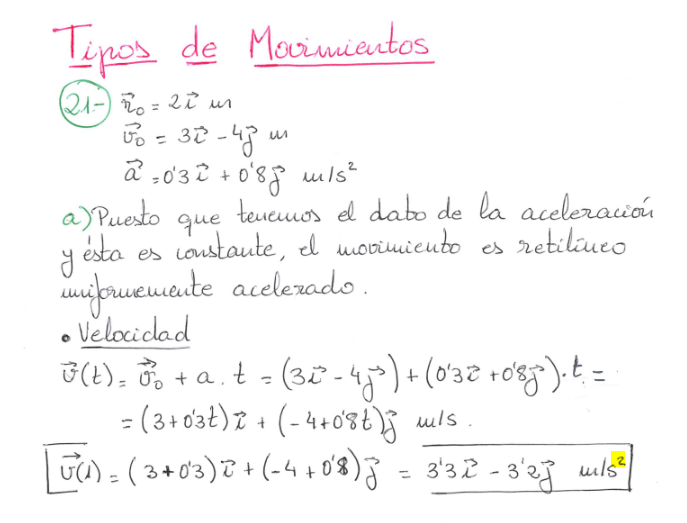 Tipos de Movimientos
21.- r⃗₀ = 2i⃗ m
v⃗₀ = 3i⃗ - 4j⃗ m
a⃗ = 0'3i⃗ + 0'8j⃗ m/s²
a) Puesto que tenemos el dato de la aceleración
y ésta es constante, el movimiento es retilíneo
uniformemente acelerado.
• Velocidad
v⃗(t) = v⃗₀ + a . t = (3i⃗ - 4j⃗) + (0'3i⃗ + 0'8j⃗) · t =
= (3+0'3t)i⃗ + (-4+0'8t)j⃗ m/s.
v⃗(1) = (3+0'3)i⃗ + (-4+0'8)j⃗ = 3'3i⃗ - 3'2j⃗ m/s²